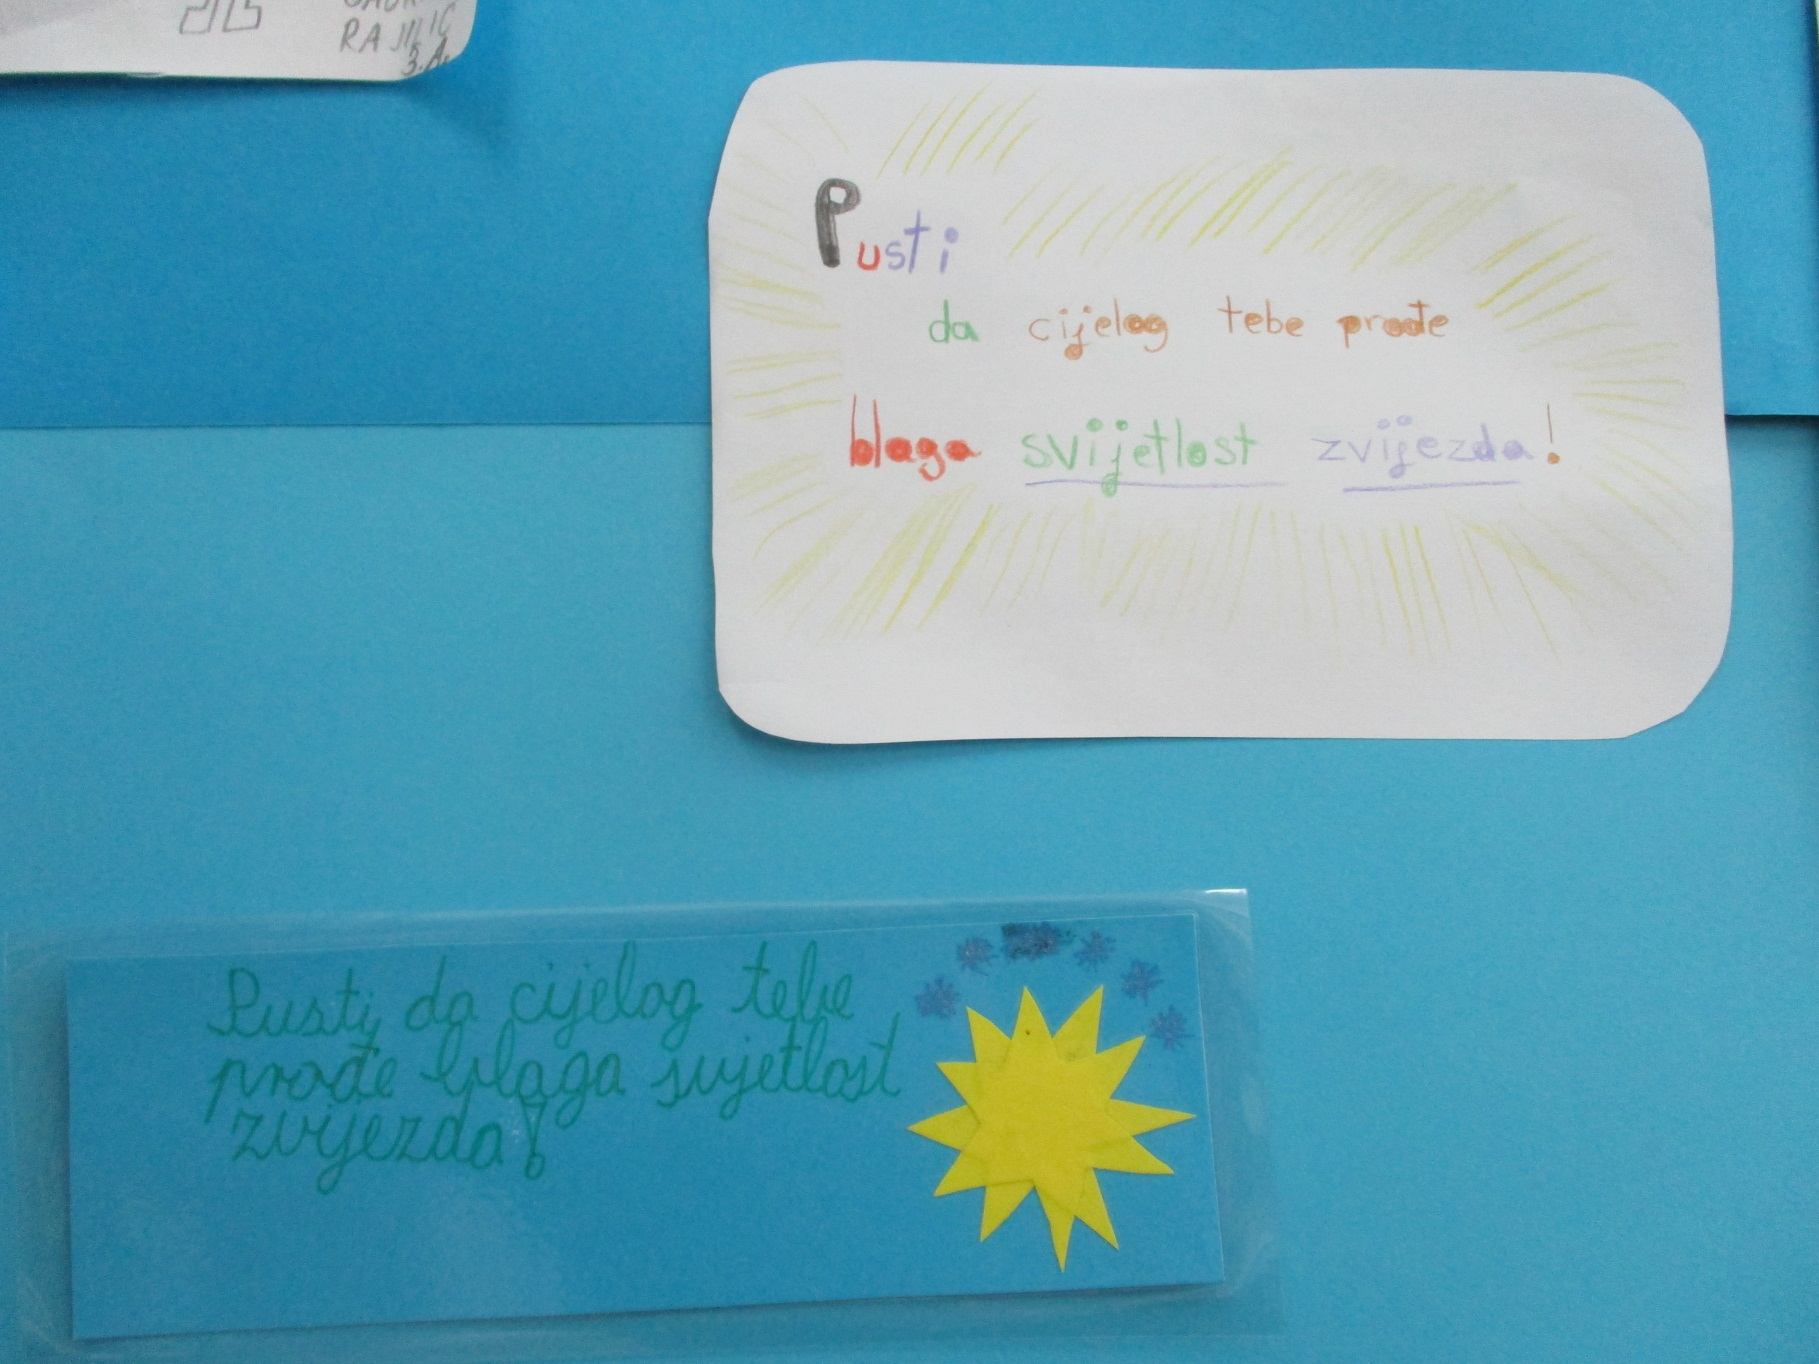 RAJILIĆ
3.A.
Pusti
da cijelog tebe prođe
blaga svijetlost zvijezda!
Pusti da cijelog tebe
prođe blaga svjetlost
zvijezda!